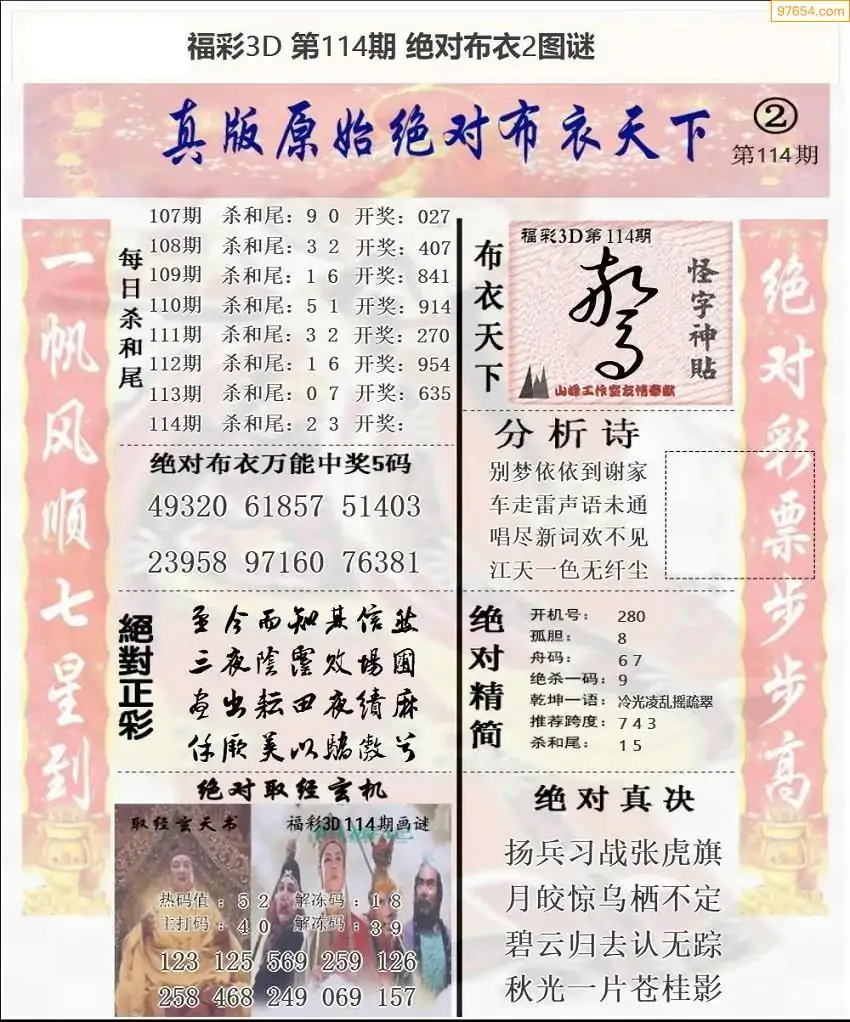 97654.com
福彩3D 第114期 绝对布衣2图谜
真版原始绝对布衣天下
②
第114期
一帆风顺七星到
每日杀和尾
107期 杀和尾: 9 0 开奖: 027
108期 杀和尾: 3 2 开奖: 407
109期 杀和尾: 1 6 开奖: 841
110期 杀和尾: 5 1 开奖: 914
111期 杀和尾: 3 2 开奖: 270
112期 杀和尾: 1 6 开奖: 954
113期 杀和尾: 0 7 开奖: 635
114期 杀和尾: 2 3 开奖:
绝对布衣万能中奖5码
49320 61857 51403
23958 97160 76381
絕對正彩
至今而知其信然
三夜陰靈敗場圃
晝出耘田夜績麻
作厥美以驕敖兮
绝对取经玄机
取经玄天书
福彩3D114期画谜
热码值: 5 2 解冻码: 1 8
主打码: 4 0 解冻码: 3 9
123 125 569 259 126
258 468 249 069 157
布衣天下
福彩3D第114期
怪字神貼
山峰工作室友情奉献
分析诗
别梦依依到谢家
车走雷声语未通
唱尽新词欢不见
江天一色无纤尘
绝对精简
开机号: 280
孤胆: 8
舟码: 6 7
绝杀一码: 9
乾坤一语: 冷光凌乱摇疏翠
推荐跨度: 7 4 3
杀和尾: 1 5
绝对真决
扬兵习战张虎旗
月皎惊乌栖不定
碧云归去认无踪
秋光一片苍桂影
绝对彩票步步高